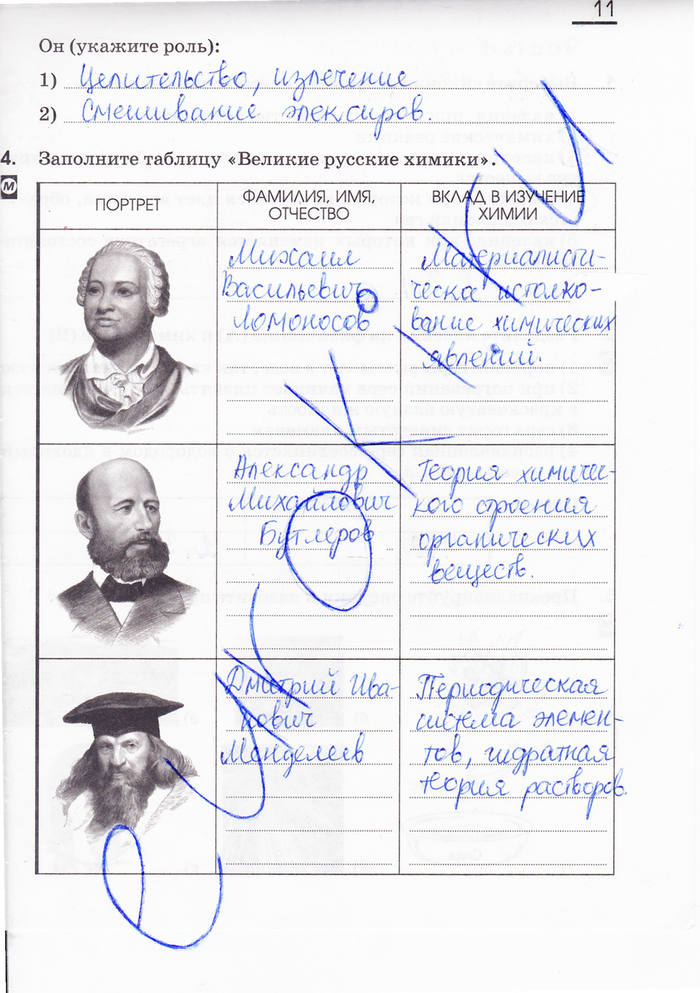 11
Он (укажите роль):
1) Целительство, излечение
2) Смешивание элексиров.
4. Заполните таблицу «Великие русские химики».
М
ПОРТРЕТ
ФАМИЛИЯ, ИМЯ,
ОТЧЕСТВО
ВКЛАД В ИЗУЧЕНИЕ
ХИМИИ
Михаил
Васильевич
Ломоносов
Материалисти-
ческа истолко-
вание химических
явлений.
Александр
Михайлович
Бутлеров
Теория химиче-
кого строения
органических
веществ.
Дмитрий Ива-
нович
Менделеев
Периодическая
система элемен-
тов, гидратная
теория растворов.